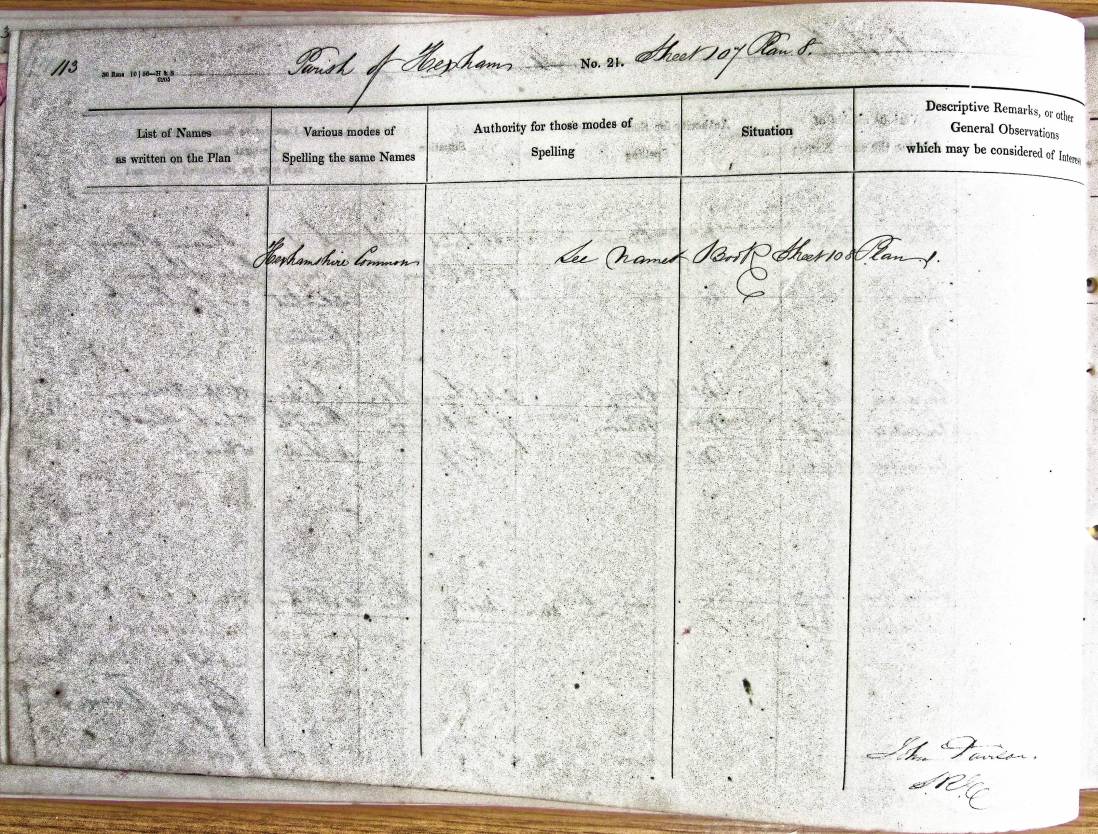 113
Parish of Hexham No. 24. Sheet 107 Plan 8.
List of Names
as written on the Plan
Various modes of
Spelling the same Names
Authority for those modes of
Spelling
Situation
Descriptive Remarks, or other
General Observations
which may be considered of Interest
Hexhamshire Common See Names Book Sheet 108 Plan 1.
John